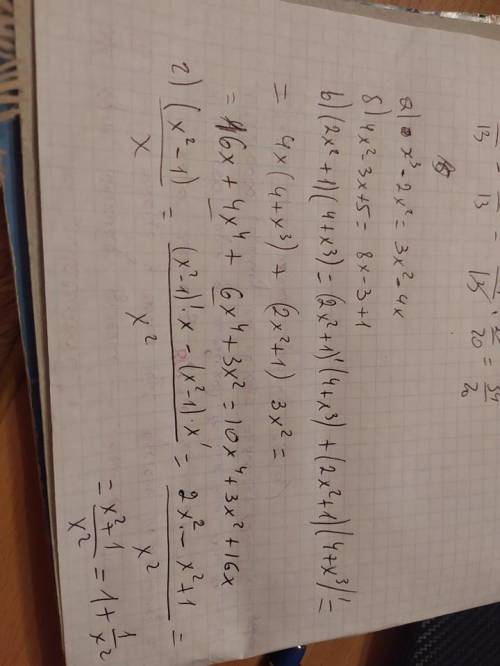 13 = 13 = 15 · 20 = 20
a) x³ - 2x² = 3x² - 4x
б) 4x² - 3x + 5 = 8x - 3 + 1
в) (2x² + 1)(4 + x³) = (2x² + 1)'(4 + x³) + (2x² + 1)(4 + x³)' =
= 4x(4 + x³) + (2x² + 1) 3x² =
= 16x + 4x⁴ + 6x⁴ + 3x² = 10x⁴ + 3x² + 16x
г) (x² - 1)/x = ((x² - 1)' · x - (x² - 1) · x')/x² = (2x² - x² + 1)/x² =
= (x² + 1)/x² = 1 + 1/x²